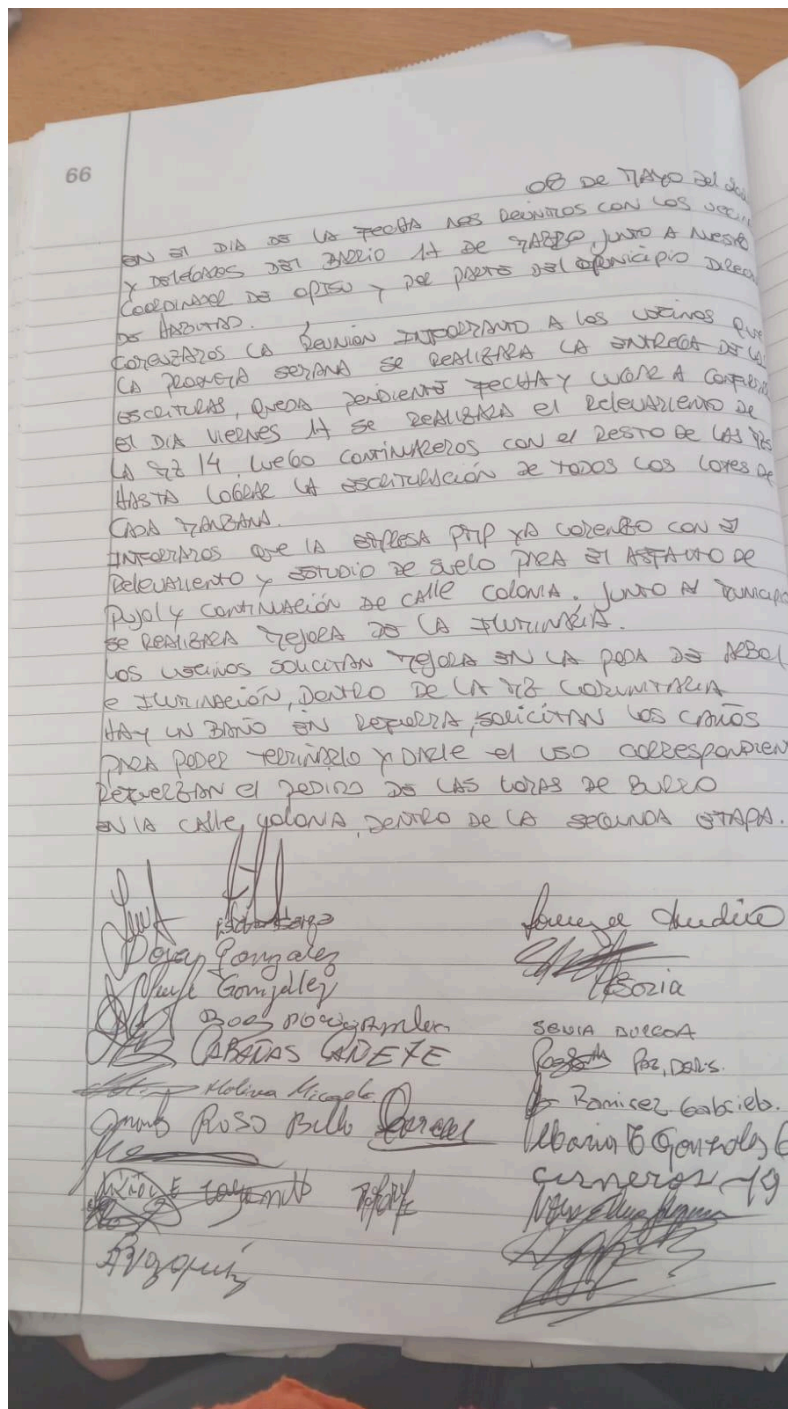 66
08 DE MAYO DEL
EN EL DIA DE LA FECHA NOS REUNIMOS CON LOS VECIN
Y DELEGADOS DEL BARRIO 17 DE MARZO, JUNTO A NUESTR
COORDINADOR DE OPISU Y POR PARTE DEL MUNICIPIO DIREC
DE HABITAD.
COMENZAMOS LA REUNION INFORMANDO A LOS VECINOS QUE
LA PROXIMA SEMANA SE REALIZARA LA ENTREGA DE LA
ESCRITURAS, QUEDA PENDIENTE FECHA Y LUGAR A CONFIRMA
EL DIA VIERNES 17 SE REALIZARA EL RELEVAMIENTO DE
LA MZ 14, LUEGO CONTINUAREMOS CON EL RESTO DE LAS MZS
HASTA LOGRAR LA ESCRITURACIÓN DE TODOS LOS LOTES DE
CADA MANZANA.
INFORMAMOS QUE LA EMPRESA PMP YA COMENZO CON EL
RELEVAMIENTO Y ESTUDIO DE SUELO PARA EL ASFALTO DE
PUJOL Y CONTINUACIÓN DE CALLE COLONIA. JUNTO AL MUNICIPI
SE REALIZARA MEJORA DE LA
LOS VECINOS SOLICITAN MEJORA EN LA PODA DE ARBOL
E ILUMINACIÓN, DENTRO DE LA MZ COMUNITARIA
HAY UN BAÑO EN REFORMA, SOLICITAN LOS CAÑOS
PARA PODER TERMINARLO Y DARLE EL USO CORRESPONDIEN
REFUERZAN EL PEDIDO DE LAS LOMAS DE BURRO
EN LA CALLE COLONIA, DENTRO DE LA SEGUNDA ETAPA.
Gonzalez
Gonzalez
CABAÑAS CAÑETE
Molina Micaela
ROSO Bello
PAZ, DORIS.
Ramirez Gabriela.
Gonzales
Cisneros